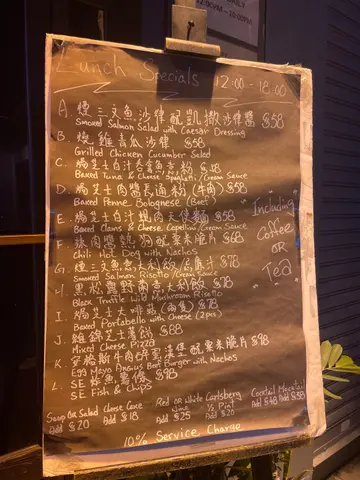 Lunch Specials 12:00 - 18:00
A. 燻三文魚沙律配凱撒沙律醬 $58
Smoked Salmon Salad with Caesar Dressing
B. 燒雞青瓜沙律 $58
Grilled Chicken Cucumber Salad
C. 焗芝士白汁吞拿魚意粉 $78
Baked Tuna & Cheese Spaghetti / Cream Sauce
D. 焗芝士肉醬長通粉 (牛肉) $58
Baked Penne Bolognese (Beef)
E. 焗芝士白汁蜆肉天使麵 $58
Baked Clams & Cheese Capellini / Cream Sauce
F. 辣肉醬熱狗配粟米脆片 $68
Chili Hot Dog with Nachos
G. 燻三文魚意大利飯 $78
Smoked Salmon Risotto / Cream Sauce
H. 黑松露野菌意大利飯 $78
Black Truffle Wild Mushroom Risotto
I. 焗芝士大啡菇 (兩隻) $78
Baked Portabella with Cheese (2pcs)
J. 雜錦芝士薄餅 $88
Mixed Cheese Pizza
K. 安格斯牛肉漢堡配粟米脆片 $98
Egg Mayo Angus Beef Burger with Nachos
L. SE 炸魚薯條 $98
SE Fish & Chips
"Including
Coffee
OR
Tea"
Soup OR Salad Add $20
Cheese Cake Add $18
Red OR White Wine Add $25
Carlsberg ½ Pint Add $20
Cocktail Add $48
Mocktail Add $38
10% Service Charge